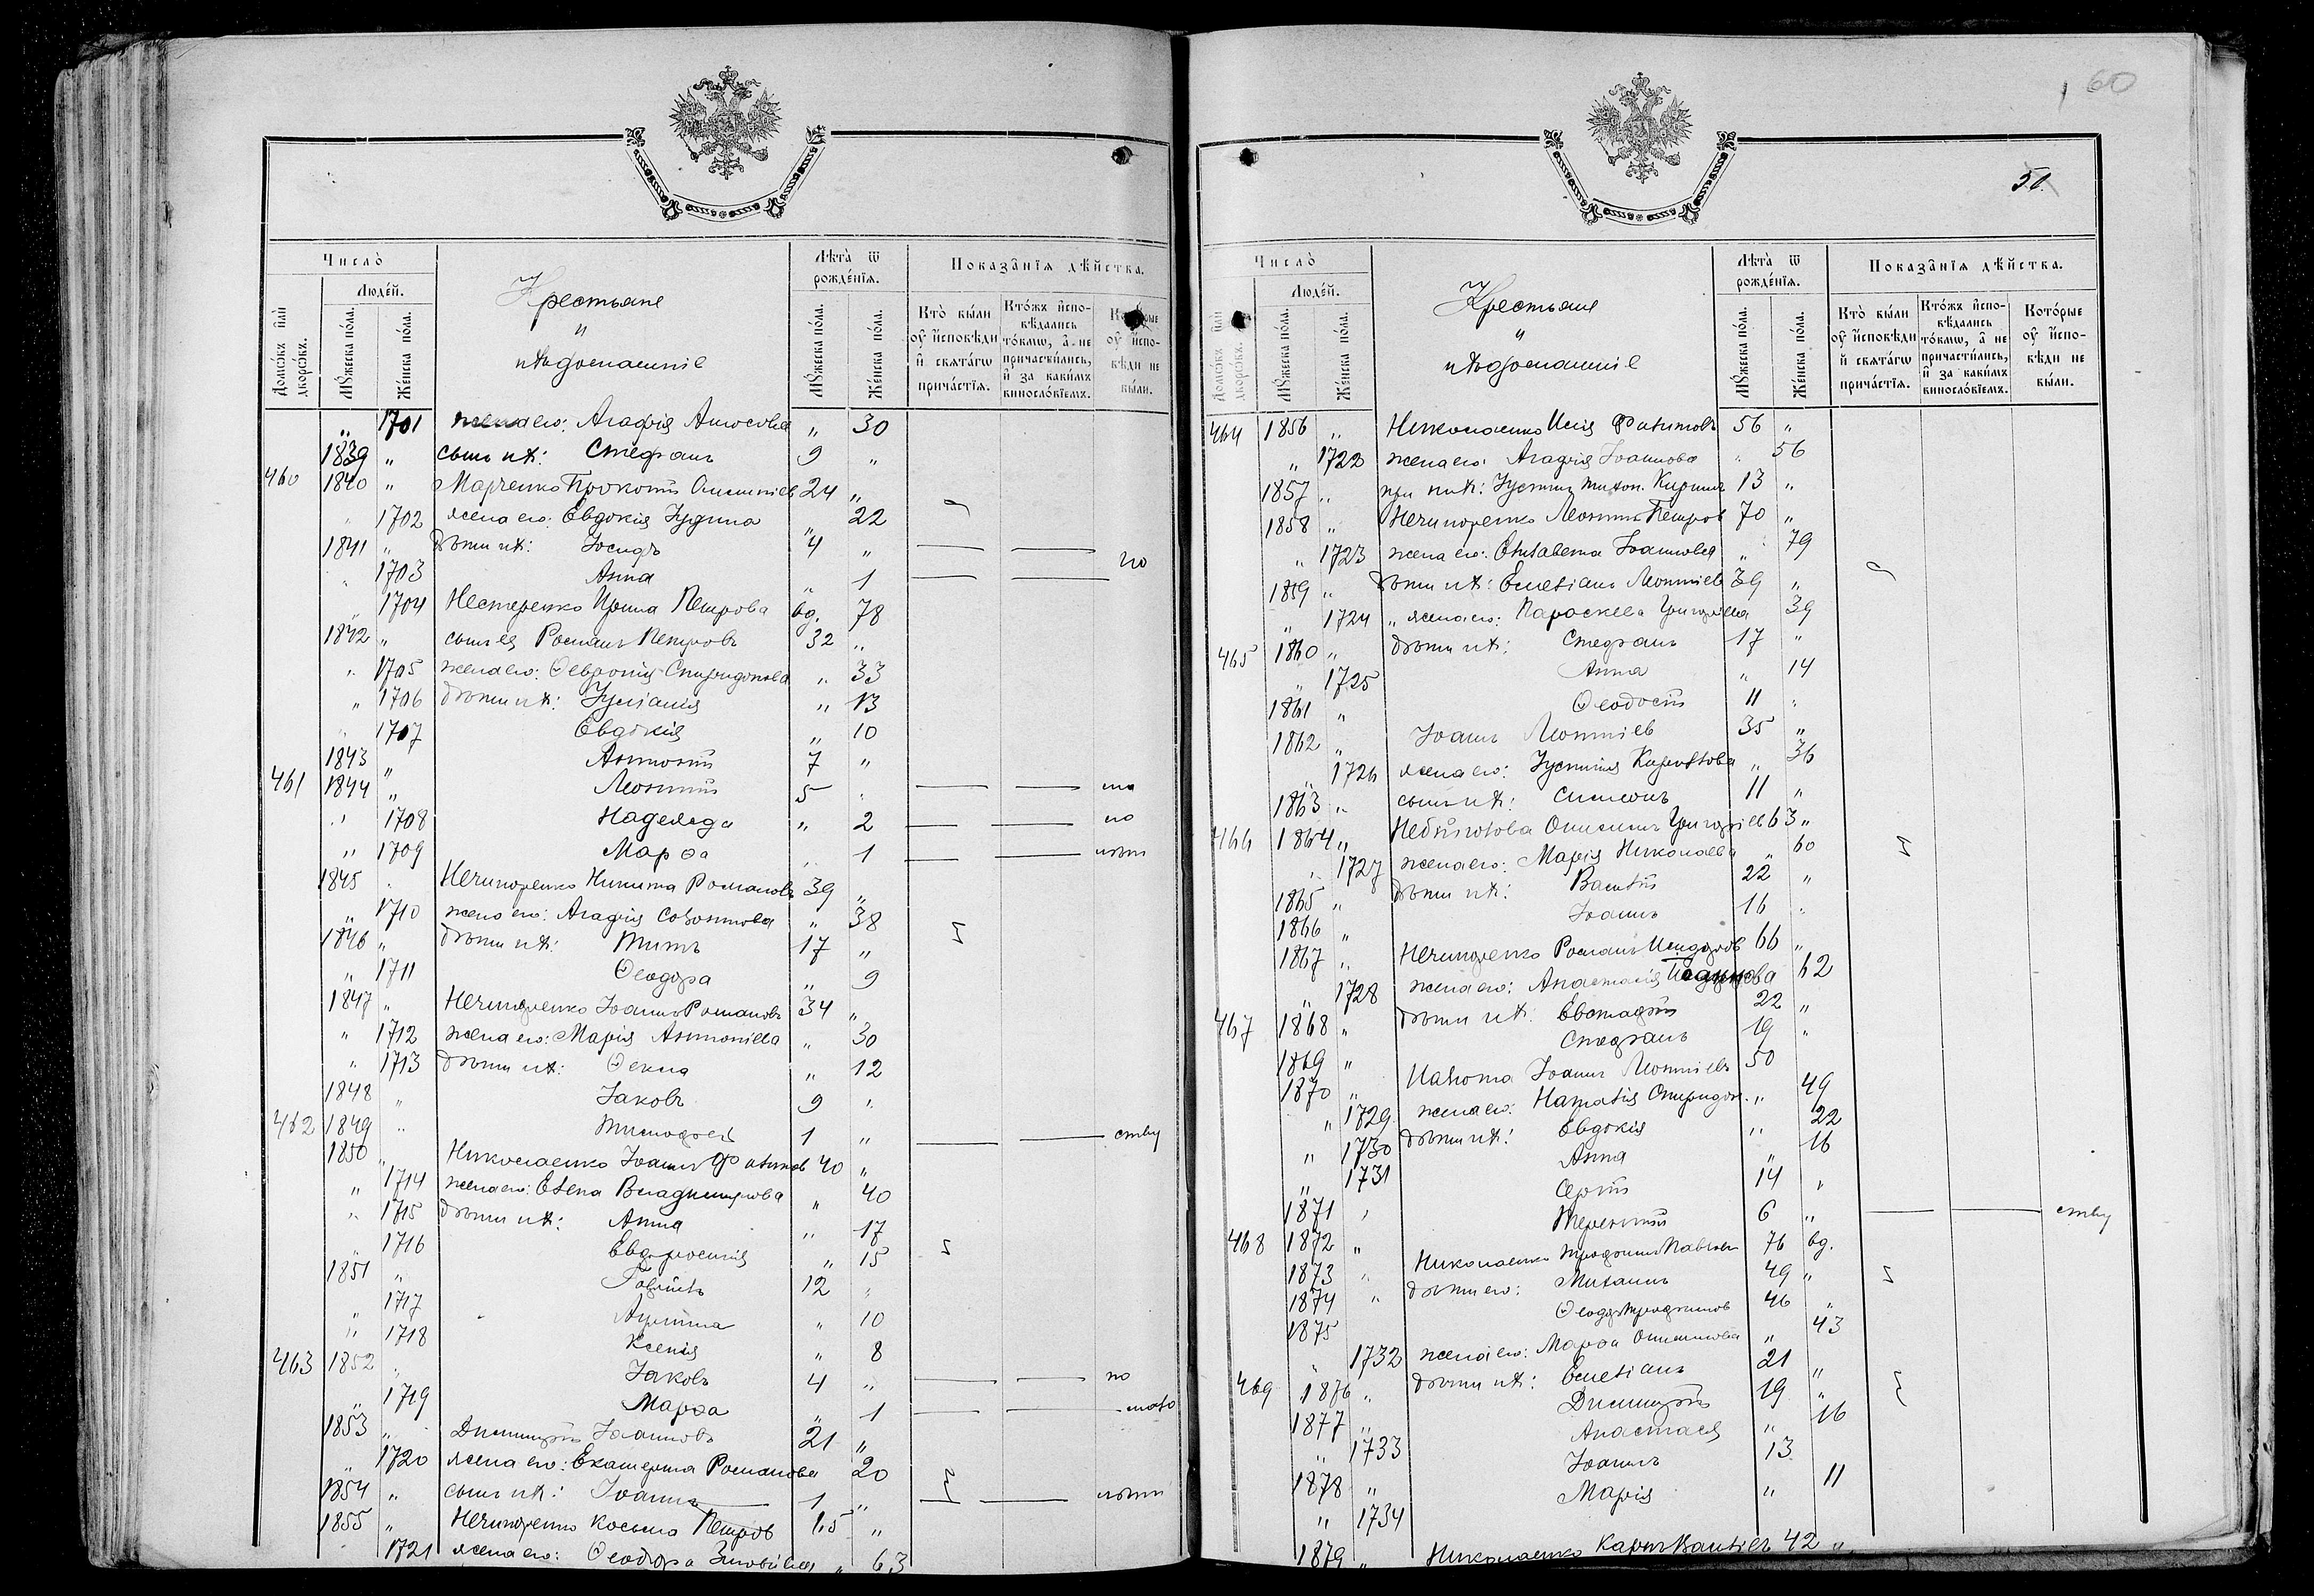 Число̀
Людéй.
Домѡ́въ и҆лѝ дворѡ́въ.
Мꙋ́жеска по́ла.
Же́нска по́ла.
Крестьяне
и
их домашніе
Лѣта̀ ѿ рожде́нїѧ.
Мꙋ́жеска по́ла.
Же́нска по́ла.
Показа̑нїѧ дѣ́йства.
Кто̀ бы́ли оу҆ и҆сповѣди и҆ свѧта́гѡ прича́стїѧ.
Кто́жъ и҆спо-вѣ́дались то́кмѡ, а҆ не причасти́лись, и҆ за каки́мъ винословїемъ.
оу҆ и҆спо-вѣди не бы́ли.
„ 1701 жена его: Агафія Амосова „ 30
1839 „ сынъ их: Стефанъ 9 „
460 1840 „ Марченко Прокопій 24 „
„ 1702 жена его: Евдокія Іудина „ 22
1841 „ дѣти их: Іосифъ 4 „
„ 1703 Анна „ 1 по
„ 1704 Нестеренко Ирина Петрова вд. 78
1842 „ сынъ ея Романъ Петровъ 32 „
„ 1705 жена его: Ѳевронія Спиридонова „ 33
„ 1706 дѣти их: Іуліанія „ 13
„ 1707 Евдокія „ 10
1843 „ Антоній 7 „
461 1844 „ Леонтій 5 „
„ 1708 Надежда „ 2 по
„ 1709 Марѳа „ 1
1845 „ Нечипоренко Никита Романовъ 39 „
„ 1710 жена его: Агафія Созонтова „ 38
1846 „ дѣти их: Титъ 17 „
„ 1711 Ѳеодора „ 9
1847 „ Нечипоренко Іоаннъ Романовъ 34 „
„ 1712 жена его: Марія Антоніева „ 30
„ 1713 дѣти их: Ѳекла „ 12
1848 „ Іаковъ 9 „
462 1849 „ Тимоѳей 1 „ ству
1850 „ Николаенко Іоаннъ 40 „
„ 1714 жена его: Елена Владимирова „ 40
„ 1715 дѣти их: Анна „ 17
„ 1716 Евфросинія „ 15
1851 „ Гавріилъ 12 „
„ 1717 „ 10
„ 1718 Ксенія „ 8
463 1852 „ Іаковъ 4 „ по
„ 1719 Марѳа „ 1 мало
1853 „ Димитрій Іоанновъ 21 „
„ 1720 жена его: Екатерина Романова „ 20
1854 „ сынъ их: Іоаннъ 1 „
1855 „ Нечипоренко Косьма Петров 65 „
1721 жена его: Ѳеодора Зиновіева „ 63
60
51
Число̀
Людéй.
Домѡ́въ и҆лѝ дворѡ́въ.
Мꙋ́жеска по́ла.
Же́нска по́ла.
Крестьяне
и
их домашніе
Лѣта̀ ѿ рожде́нїѧ.
Мꙋ́жеска по́ла.
Же́нска по́ла.
Показа̑нїѧ дѣ́йства.
Кто̀ бы́ли оу҆ и҆сповѣди и҆ свѧта́гѡ прича́стїѧ.
Кто́жъ и҆спо-вѣ́дались то́кмѡ, а҆ не причасти́лись, и҆ за каки́мъ винословїемъ.
Кото́рые оу҆ и҆спо-вѣди не бы́ли.
464 1856 „ Николаенко Илія 56 „
„ 1722 жена его: Агафія Іоаннова „ 56
1857 „ при них: Іустинъ Тихон. Кирил 13 „
1858 „ Нечипоренко Леонтій Петров 70 „
„ 1723 жена его: Елизавета Іоаннова „ 79
1859 „ дѣти их: Емеліанъ Леонтіев 39 „
„ 1724 „ жена его: Параскева Григоріева 39
465 1860 „ дѣти их: Стефанъ 17 „
„ 1725 Анна „ 14
1861 „ Ѳеодосій 11 „
1862 „ Іоаннъ Леонтіев 35 „
„ 1726 жена его: Іустина Кириллова „ 36
1863 „ сынъ их: Симеонъ 11 „
466 1864 „ Онисимъ Григоріев 63 „
„ 1727 жена его: Марія Николаева „ 60
1865 „ дѣти их: Василій 22 „
1866 „ Іоаннъ 16 „
1867 „ Нечипоренко Романъ Исидоров 66 „
„ 1728 жена его: Анастасія 62
467 1868 „ дѣти их: Евстафій 22 „
1869 „ Стефанъ 19 „
1870 „ Іоаннъ Леонтіевъ 50
„ 1729 жена его: Наталія Спиридон. „ 49
„ 1730 дѣти их: Евдокія „ 22
„ 1731 Анна „ 16
1871 „ Сергій 14 „
468 1872 „ Терентій 6 „ ству
1873 „ Николаенко Трофимъ Павлов 76 вд.
1874 „ дѣти его: Михаилъ 49 „
1875 Ѳеодоръ Трофимов 46 „
„ 1732 жена его: Марѳа Онисимова „ 43
469 1876 „ дѣти их: Емеліанъ 21 „
1877 „ Димитрій 19 „
„ 1733 Анастасія „ 16
1878 „ Іоаннъ 13
„ 1734 Марія „ 11
1879 „ Николаенко Карпъ Василіевъ 42 „